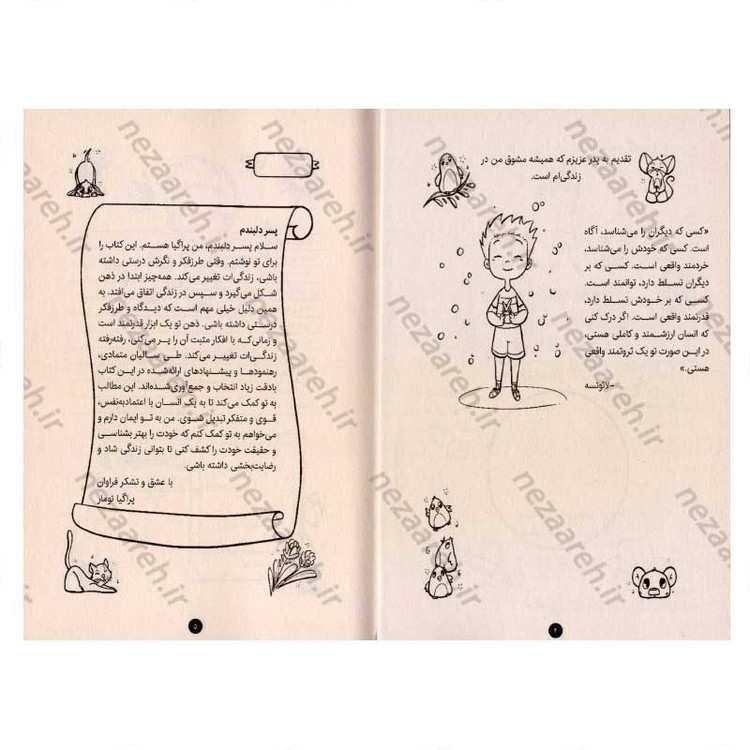 تقدیم به پدر عزیزم که همیشه مشوق من در
زندگی‌ام است.
«کسی که دیگران را می‌شناسد، آگاه
است. کسی که خودش را می‌شناسد،
خردمند واقعی است. کسی که بر
دیگران تسلط دارد، توانمند است.
کسی که بر خودش تسلط دارد،
قدرتمند واقعی است. اگر درک کنی
که انسان ارزشمند و کاملی هستی،
در این صورت تو یک ثروتمند واقعی
هستی.»
-لائوتسه
۴
پسر دلبندم
سلام پسر دلبندم، من پراگیا هستم. این کتاب را
برای تو نوشتم. وقتی طرزفکر و نگرش درستی داشته
باشی، زندگی‌ات تغییر می‌کند. همه‌چیز ابتدا در ذهن
شکل می‌گیرد و سپس در زندگی اتفاق می‌افتد. به
همین دلیل خیلی مهم است که دیدگاه و طرزفکر
درستی داشته باشی. ذهن تو یک ابزار قدرتمند است
و زمانی‌که با افکار مثبت آن را پر می‌کنی، رفته‌رفته
زندگی‌ات تغییر می‌کند. طی سالیان متمادی،
رهنمودها و پیشنهادهای ارائه‌شده در این کتاب
بادقت زیاد انتخاب و جمع‌آوری‌شده‌اند. این مطالب
به تو کمک می‌کند تا به یک انسان با اعتمادبه‌نفس،
قوی و متفکر تبدیل شوی. من به تو ایمان دارم و
می‌خواهم به تو کمک کنم که خودت را بهتر بشناسی
و حقیقت خودت را کشف کنی تا بتوانی زندگی شاد و
رضایت‌بخشی داشته باشی.
با عشق و تشکر فراوان
پراگیا تومار
۵
nezaareh.ir
nezaareh.ir
nezaareh.ir
nezaareh.ir
nezaareh.ir
nezaareh.ir
nezaareh.ir
nezaareh.ir
nezaareh.ir